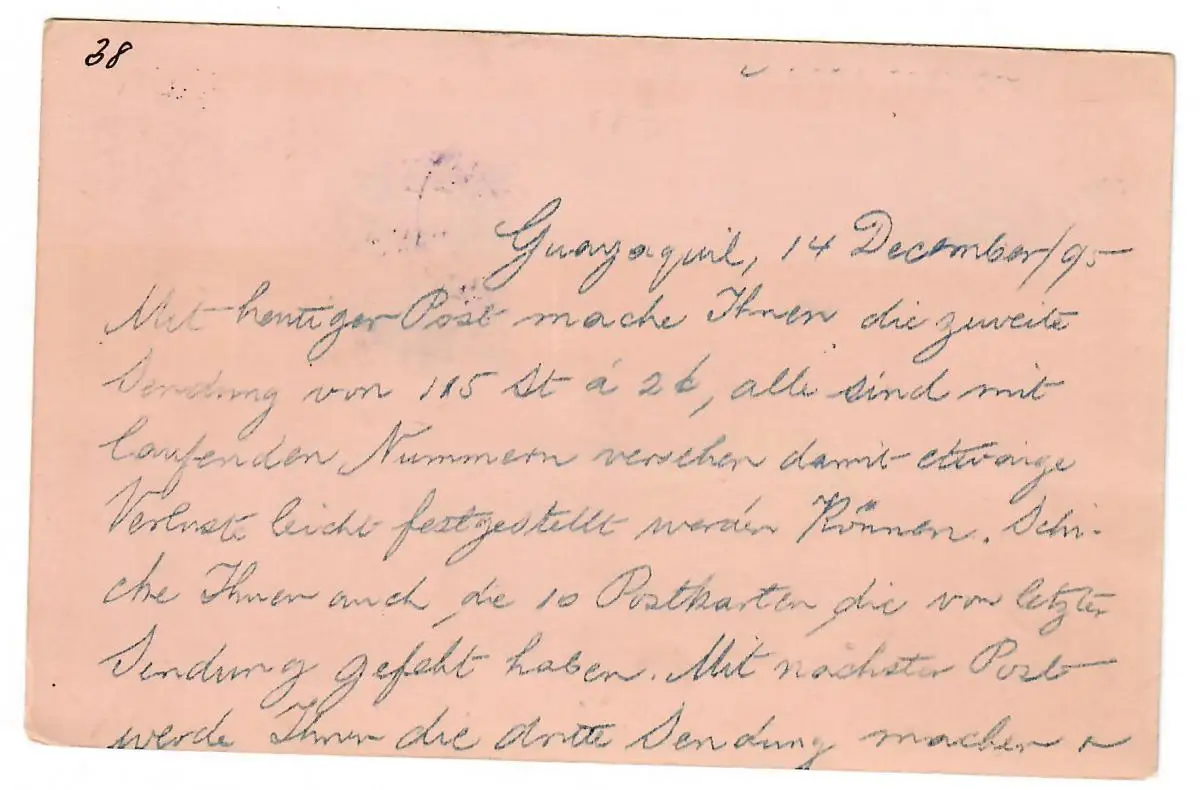 38
Guayaquil, 14 December/95
Mit heutiger Post mache Ihnen die zuweite
Sendung von 115 St á 2 ¢, alle sind mit
laufenden Nummern versehen damit etwaige
Verluste leicht festgestellt werden Können. Schi-
cke Ihnen auch die 10 Postkarten die von letzter
Sendung gefehlt haben. Mit nächster Post
werde Ihnen die dritte Sendung machen